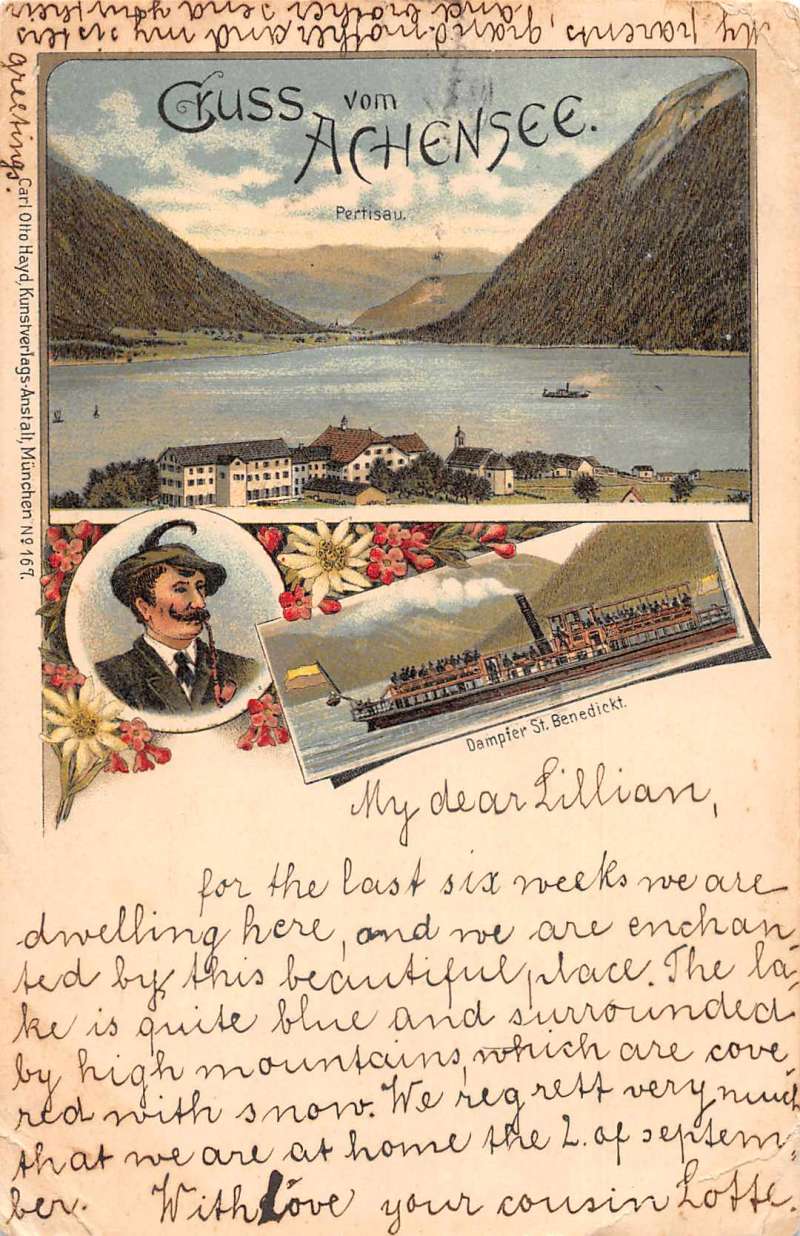 Gruss vom
ACHENSEE.
Pertisau.
Carl Otto Hayd, Kunstverlags-Anstalt, München No 167.
Dampfer St. Benedickt.
My dear Lillian,
for the last six weeks we are
dwelling here, and we are enchan
ted by this beautiful place. The la-
ke is quite blue and surrounded
by high mountains, which are cove
red with snow. We regrett very much
that we are at home the 2. of septem-
ber. With Love your cousin Lotte.
My parents, grand-mother and my sisters
and brother send you their
greetings.